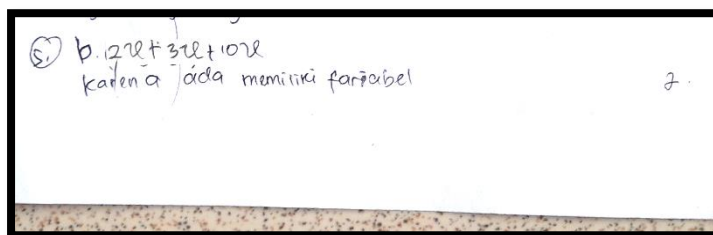 5. b. 12x + 3x + 10x
karena ada memiliki fariabel 2.